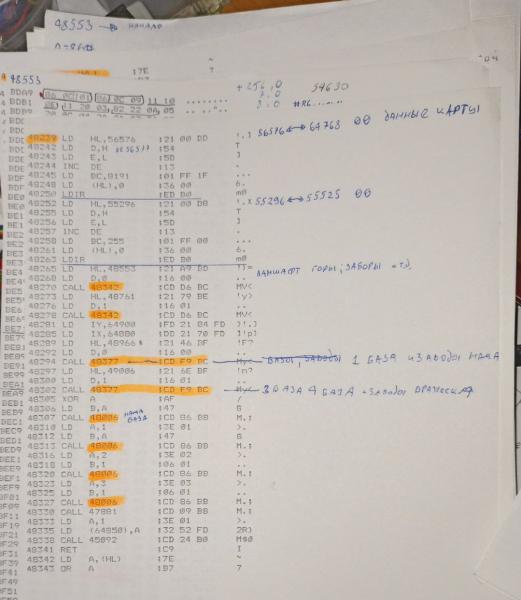 48553 → начало
:7E ~
48553
BDA9 06 00 01 06 0C 09 11 10 +256,0 54630
BDB1 11 20 03 02 22 0A 05
48239 LD HL,56576 :21 00 DD !.] 56576 ↔ 64768 00 данные карты
48242 LD D,H :54 T
48243 LD E,L :5D ]
48244 INC DE :13 .
48245 LD BC,8191 :01 FF 1F ...
48248 LD (HL),0 :36 00 6.
48250 LDIR :ED B0 m0
48252 LD HL,55296 :21 00 D8 !.X 55296 ↔ 55525 00
48255 LD D,H :54 T
48256 LD E,L :5D ]
48257 INC DE :13 .
48258 LD BC,255 :01 FF 00 ...
48261 LD (HL),0 :36 00 6.
48263 LDIR :ED B0 m0
48265 LD HL,48553 :21 A9 BD !)= ландшафт горы, заборы и т.д.
48268 LD D,0 :16 00 ..
48270 CALL 48342 :CD D6 BC MV<
48273 LD HL,48761 :21 79 BE !y>
48276 LD D,1 :16 01 ..
48278 CALL 48342 :CD D6 BC MV<
48281 LD IY,64900 :FD 21 84 FD }!.}
48285 LD IX,64880 :DD 21 70 FD ]!p}
48289 LD HL,48966 :21 46 BF !F?
48292 LD D,0 :16 00 ..
48294 CALL 48377 :CD F9 BC My< базы, заводы 1 база и заводы наша
48297 LD HL,49006 :21 6E BF !n?
48300 LD D,1 :16 01 ..
48302 CALL 48377 :CD F9 BC My< база 4 база + заводы
48305 XOR A :AF /
48306 LD B,A :47 G
48307 CALL 48006 наша база :CD 86 BB M.;
48310 LD A,1 :3E 01 >.
48312 LD B,A :47 G
48313 CALL 48006 :CD 86 BB M.;
48316 LD A,2 :3E 02 >.
48318 LD B,1 :06 01 ..
48320 CALL 48006 :CD 86 BB M.;
48323 LD A,3 :3E 03 >.
48325 LD B,1 :06 01 ..
48327 CALL 48006 :CD 86 BB M.;
48330 CALL 47881 :CD 09 BB M.;
48333 LD A,1 :3E 01 >.
48335 LD (64850),A :32 52 FD 2R}
48338 CALL 45092 :CD 24 B0 M$0
48341 RET :C9 I
48342 LD A,(HL) :7E ~
48343 OR A :B7 7